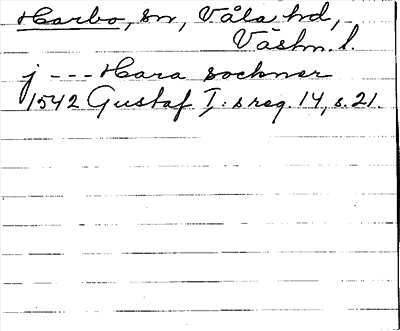 Harbo, sn, Våla hd,
Västm. l.
j --- Hara sochner
1542 Gustaf I: s reg. 14, s. 21.